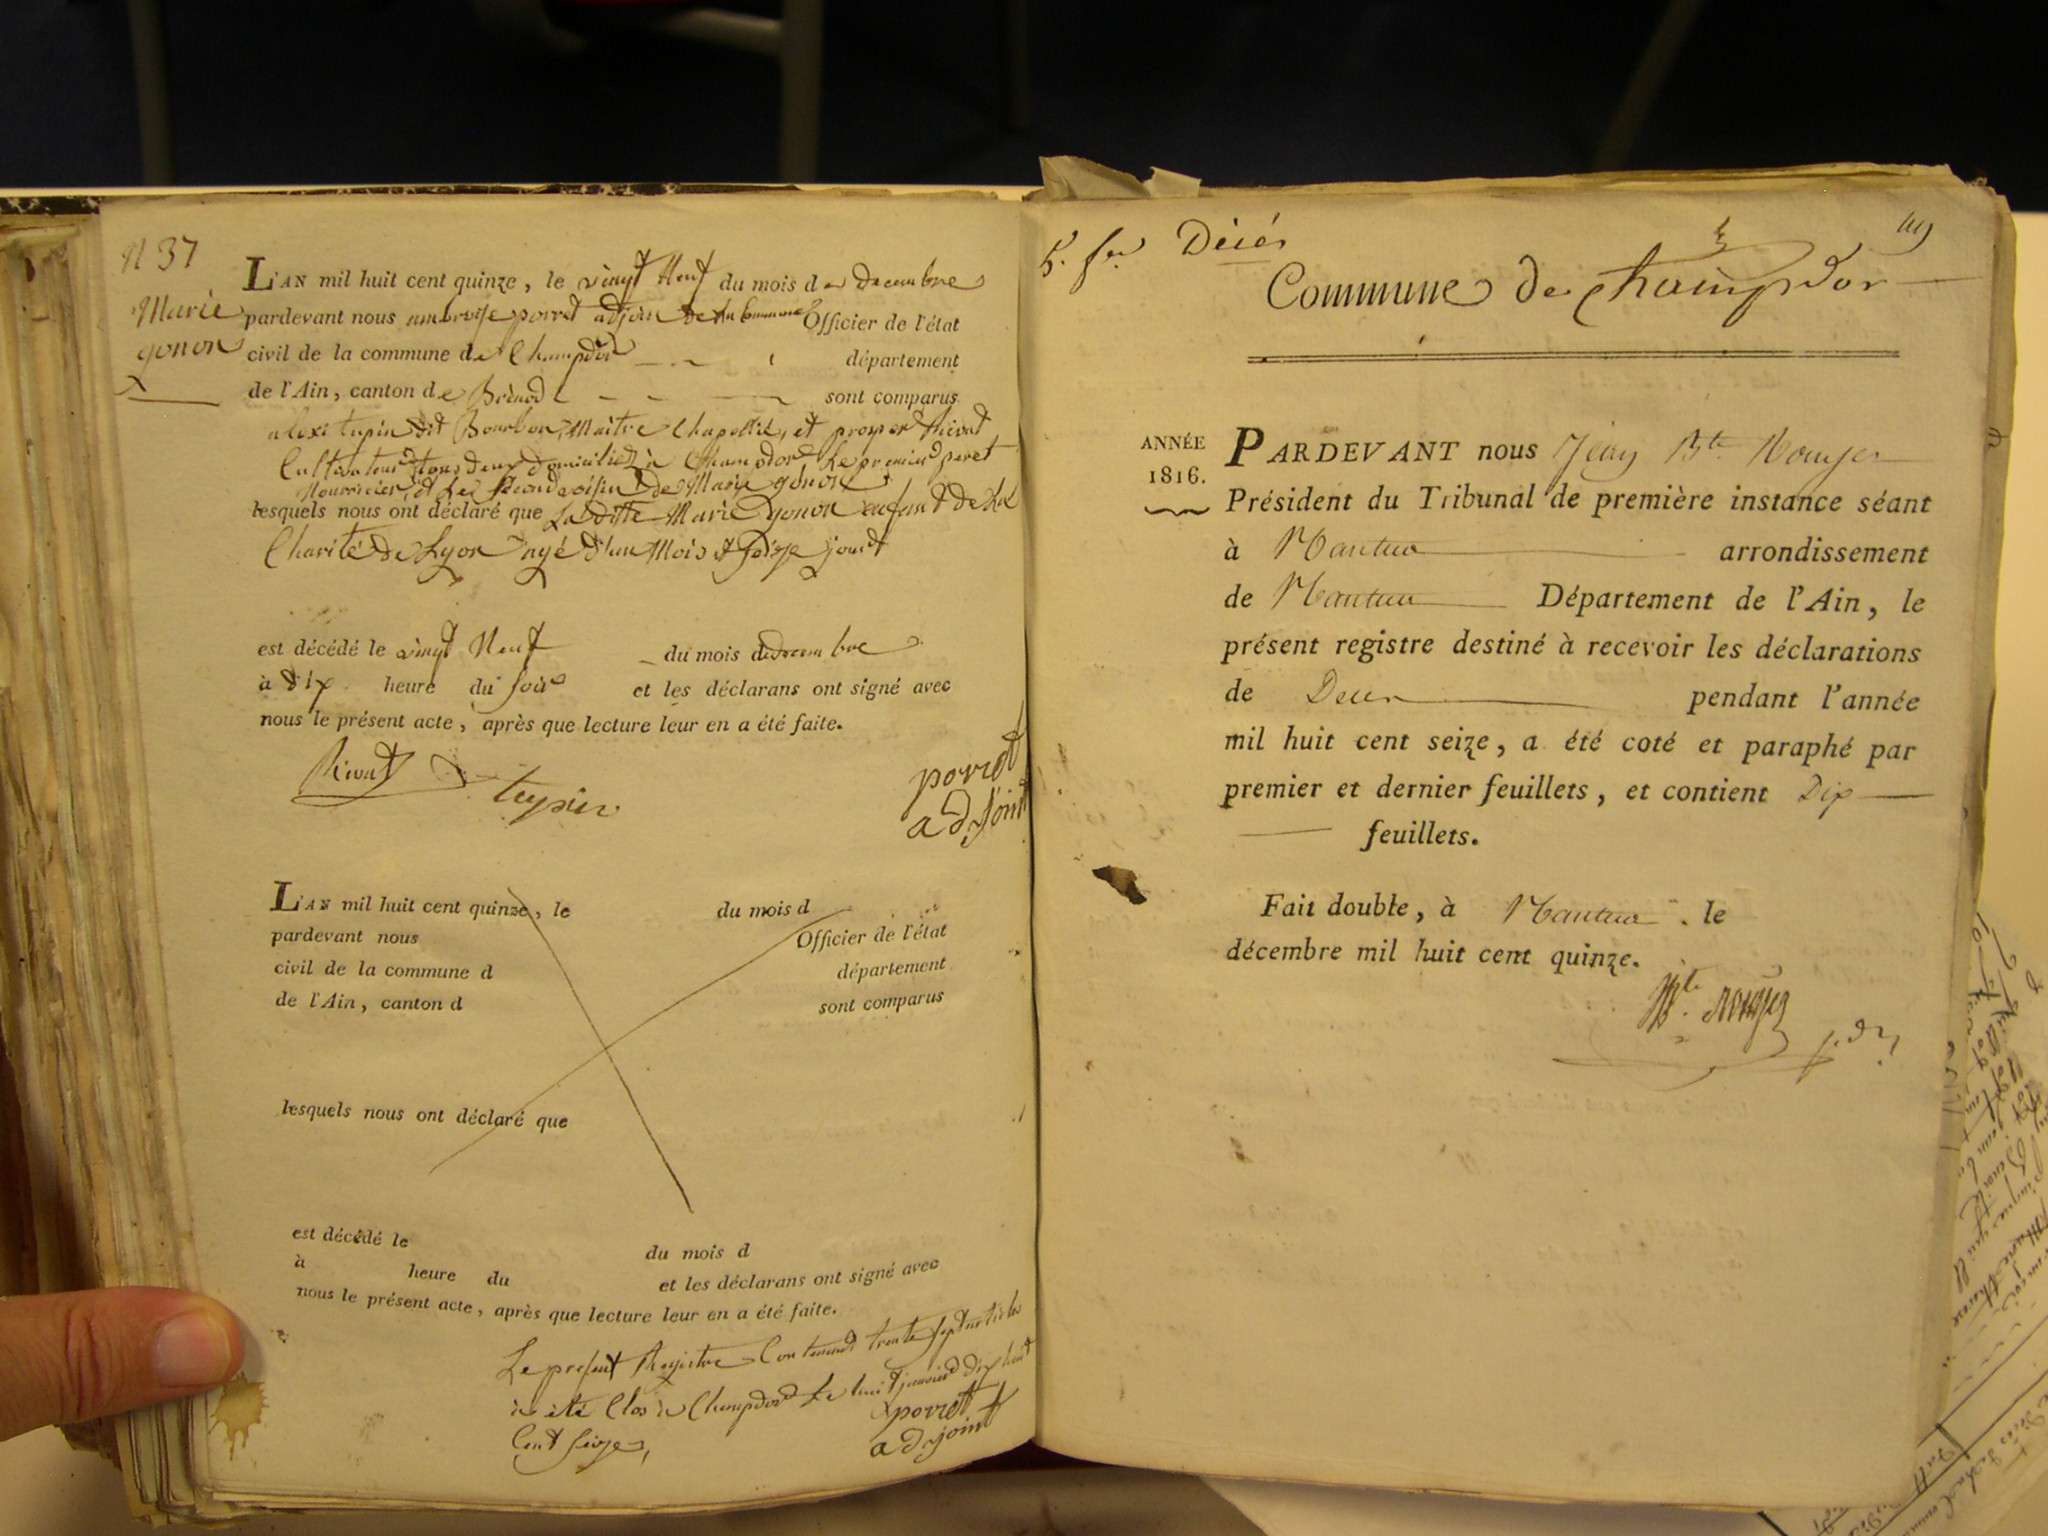 N 37
Marie
gonon
L'AN mil huit cent quinze, le vingt Neuf du mois de decembre
pardevant nous ambroise porret adjoin de la Commune Officier de l'état
civil de la commune de Champdor département
de l'Ain, canton de Brénod sont comparus
alexi tupin dit Bourbon, Maitre Chapellie, et prosper Rivat
Cultivateur tous deux domiciliez à Champdor Le premier peret
Nourricier, et Le Second voisin de Marie gonon
lesquels nous ont déclaré que La ditte Marie gonon enfant de La
Charité de Lyon agé d'un Mois et seize jourt
est décédé le vingt Neuf du mois de decembre
à dix heure du soir et les déclarans ont signé avec
nous le présent acte, après que lecture leur en a été faite.
Rivat
tupin
porret
adjoint
L'AN mil huit cent quinze, le du mois d
pardevant nous Officier de l'état
civil de la commune d département
de l'Ain, canton d sont comparus
lesquels nous ont déclaré que
est décédé le du mois d
à heure du et les déclarans ont signé avec
nous le présent acte, après que lecture leur en a été faite.
Le present Registre Contenant trente sept articles
a été Clos à Champdor Le huit janvier dix huit
Cent seize,
porret
adjoint
Décés
Commune de Champdor
ANNÉE
1816.
PARDEVANT nous Jean Bte Rouyer
Président du Tribunal de première instance séant
à Nantua arrondissement
de Nantua Département de l'Ain, le
présent registre destiné à recevoir les déclarations
de Deces pendant l'année
mil huit cent seize, a été coté et paraphé par
premier et dernier feuillets, et contient Dix
feuillets.
Fait double, à Nantua le
décembre mil huit cent quinze.